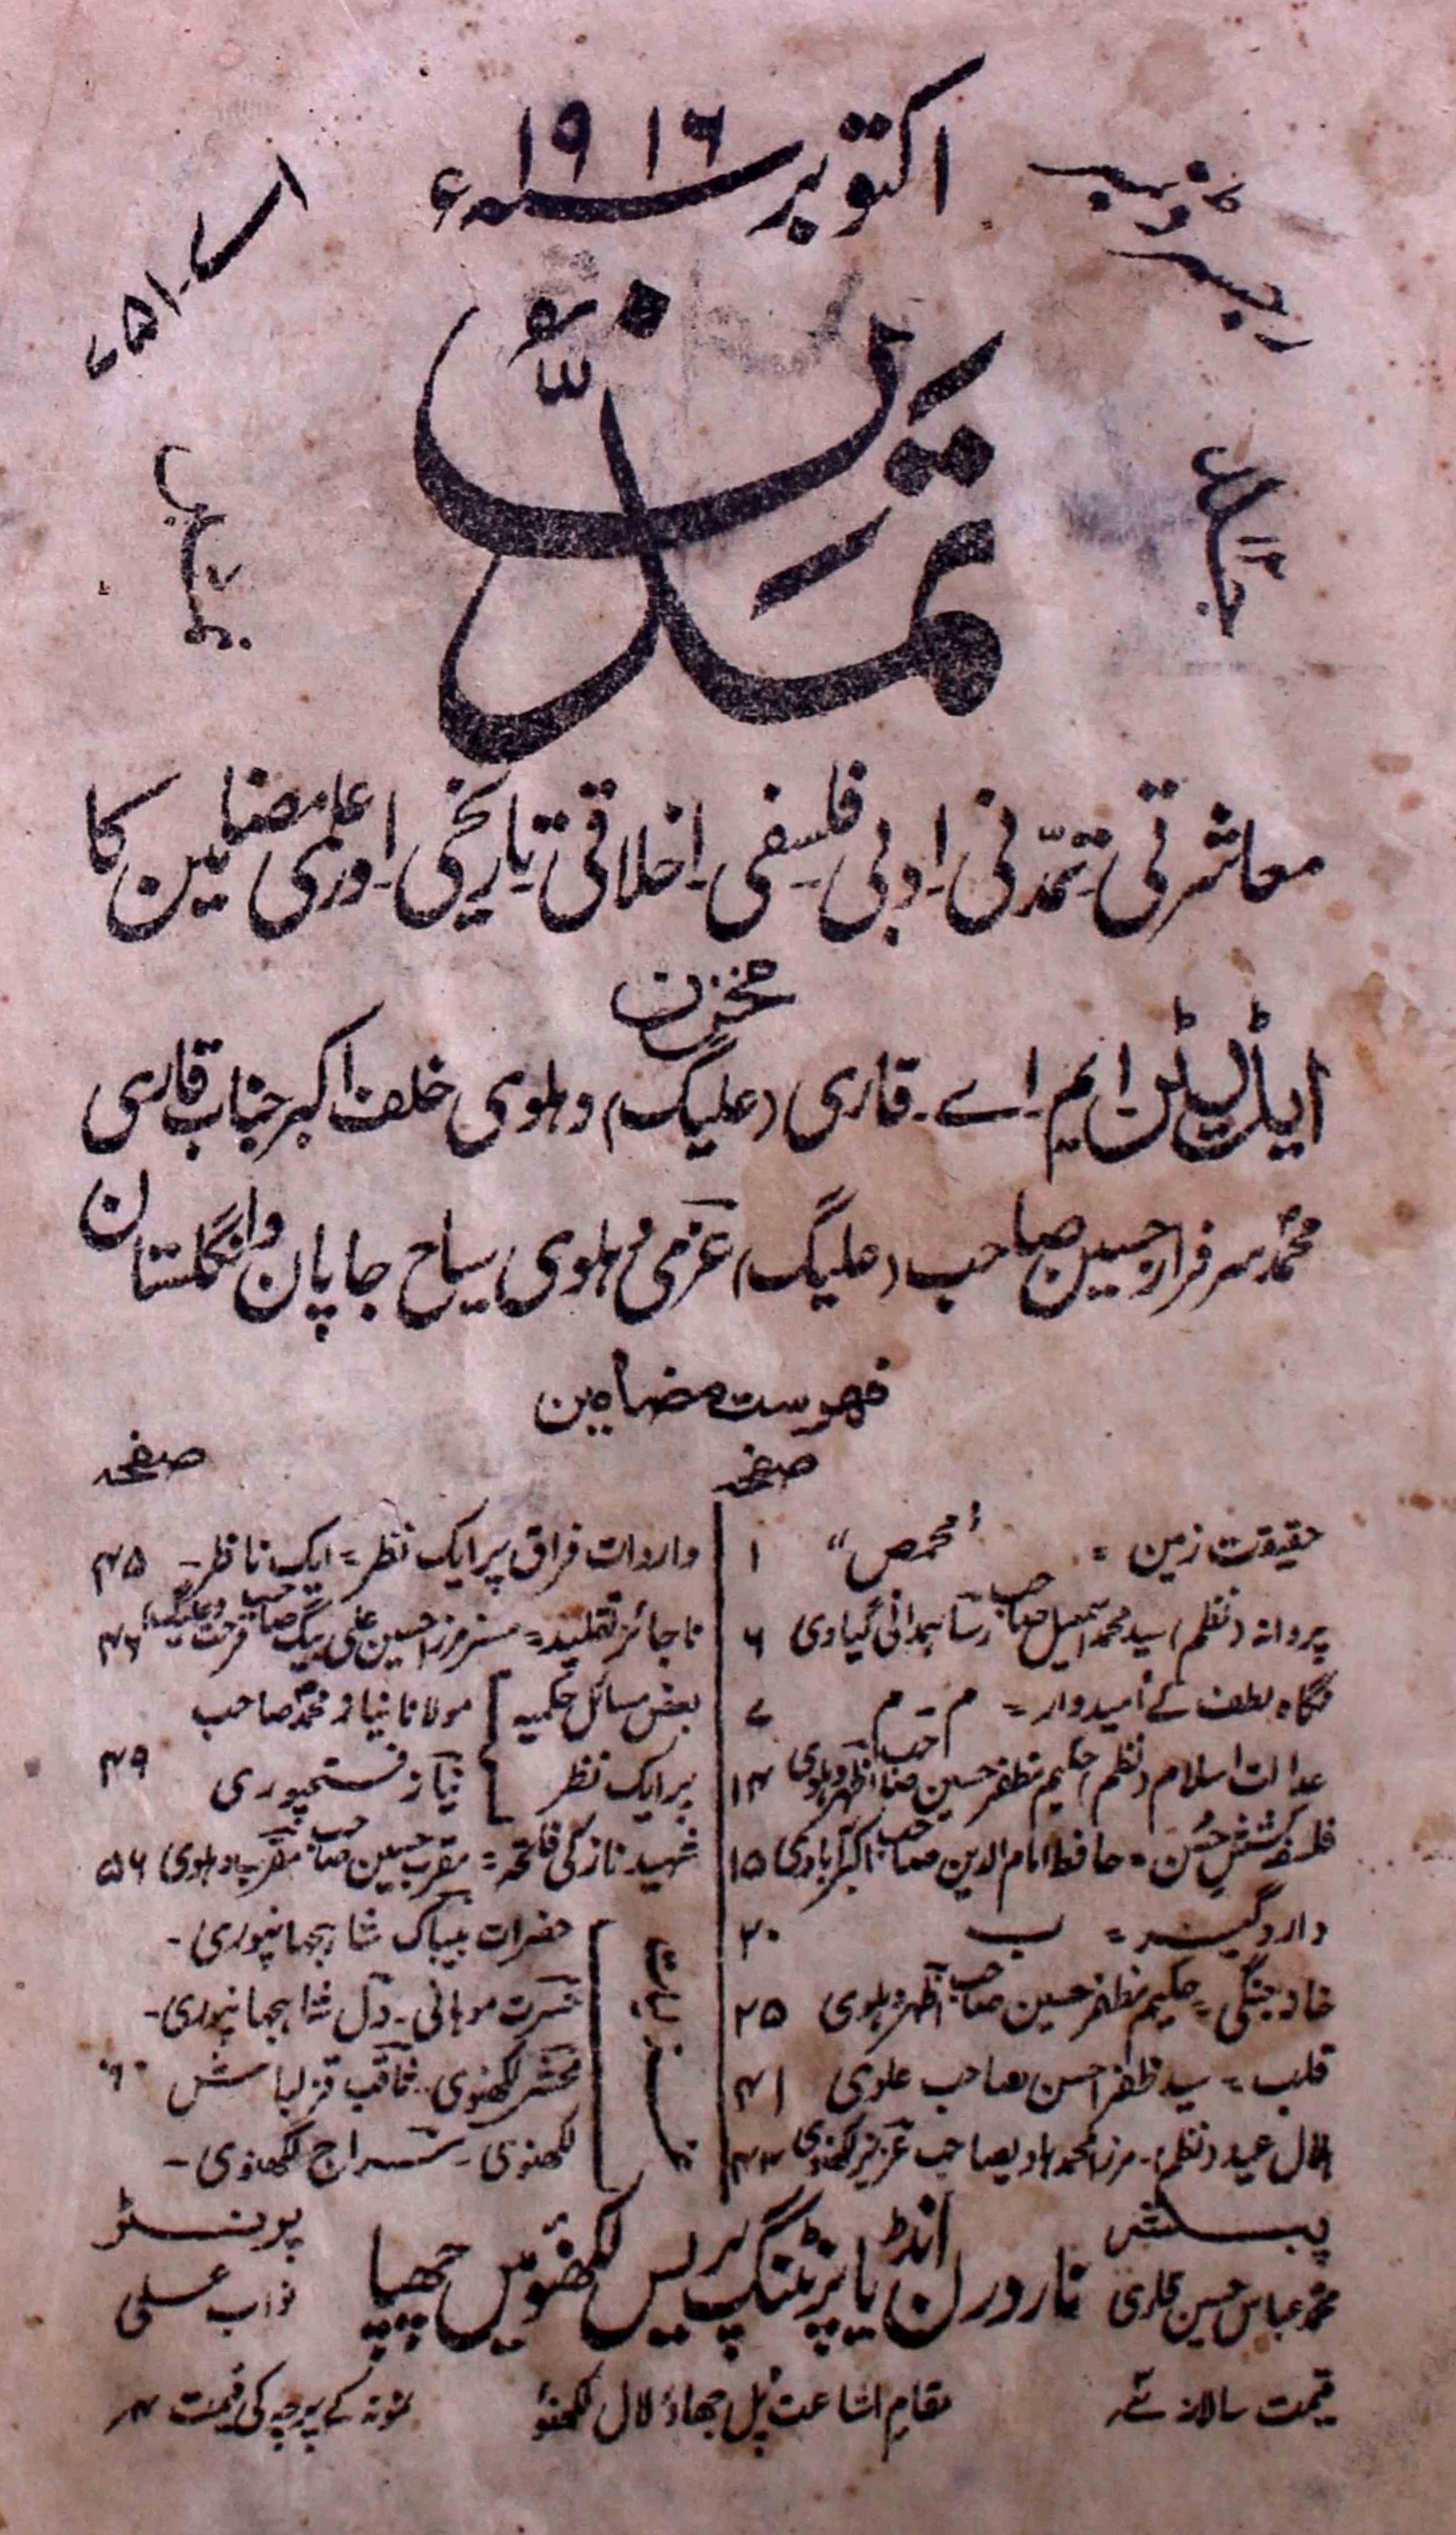 اکتوبر سنہ ۱۹۱۶ء
رجسٹرڈ نمبر
اے-۷۵۱
تمدّن
جلد ۱۲
نمبر ۷
معاشرتی۔تمدّنی۔ادبی۔فلسفی۔اخلاقی۔تاریخی۔اور عام مضامین کا
مخزن
ایڈیٹر۔ایم۔اے۔قاری (علیگ) دہلوی خلف اکبر جناب قاری
محمد سرفراز حسین صاحب (علیگ) عزمی دہلوی سیاح جاپان و انگلستان
فہرست مضامین
صفحہ
حقیقت زمین = "محمص" ۱
پروانہ (نظم) سید محمد اسمٰعیل صاحب رسا ہمدانی گیاوی ۶
نگاہ لطف کے امیدوار = م - م ۷
عدالت اسلام (نظم) حکیم مظفر حسین صاحب اظہر دہلوی ۱۴
فلسفہ کشش حُسن = حافظ امام الدین صاحب اکبرآبادی ۱۵
داروگیر = ب ۲۰
خانہ جنگی = حکیم مظفر حسین صاحب اظہر دہلوی ۲۵
قلب = سید ظفر احسن صاحب علوی ۴۱
ہلال عید (نظم)۔ مرزا محمد ہادی صاحب عزیز لکھنوی ۴۴
صفحہ
واردات فراق پر ایک نظر = ایک ناظر - ۴۵
ناجائز تقلید = مسٹر مرزا حسین علی بیگ صاحب فرحت (علیگ) ۴۶
بعض مسائل حکمیہ مولانا نیاز محمد صاحب
پر ایک نظر نیاز فتحپوری ۴۹
شہید ناز کی فاتحہ = مقرب حسین صاحب مقرب دہلوی ۵۶
غزلیات
حضرات بیباک شاہجہانپوری -
حسرت موہانی۔ دل شاہجہانپوری -
محشر لکھنوی۔ ثاقب قزلباش ۶۰
لکھنوی۔ سراج لکھنوی -
پبلشر
محمد عباس حسین قاری
ناردرن انڈیا پرنٹنگ پریس لکھنؤ میں چھپا
پرنٹر
نواب علی
قیمت سالانہ
مقام اشاعت پُل جھاؤ لال لکھنؤ
نمونہ کے پرچہ کی قیمت ۴؍